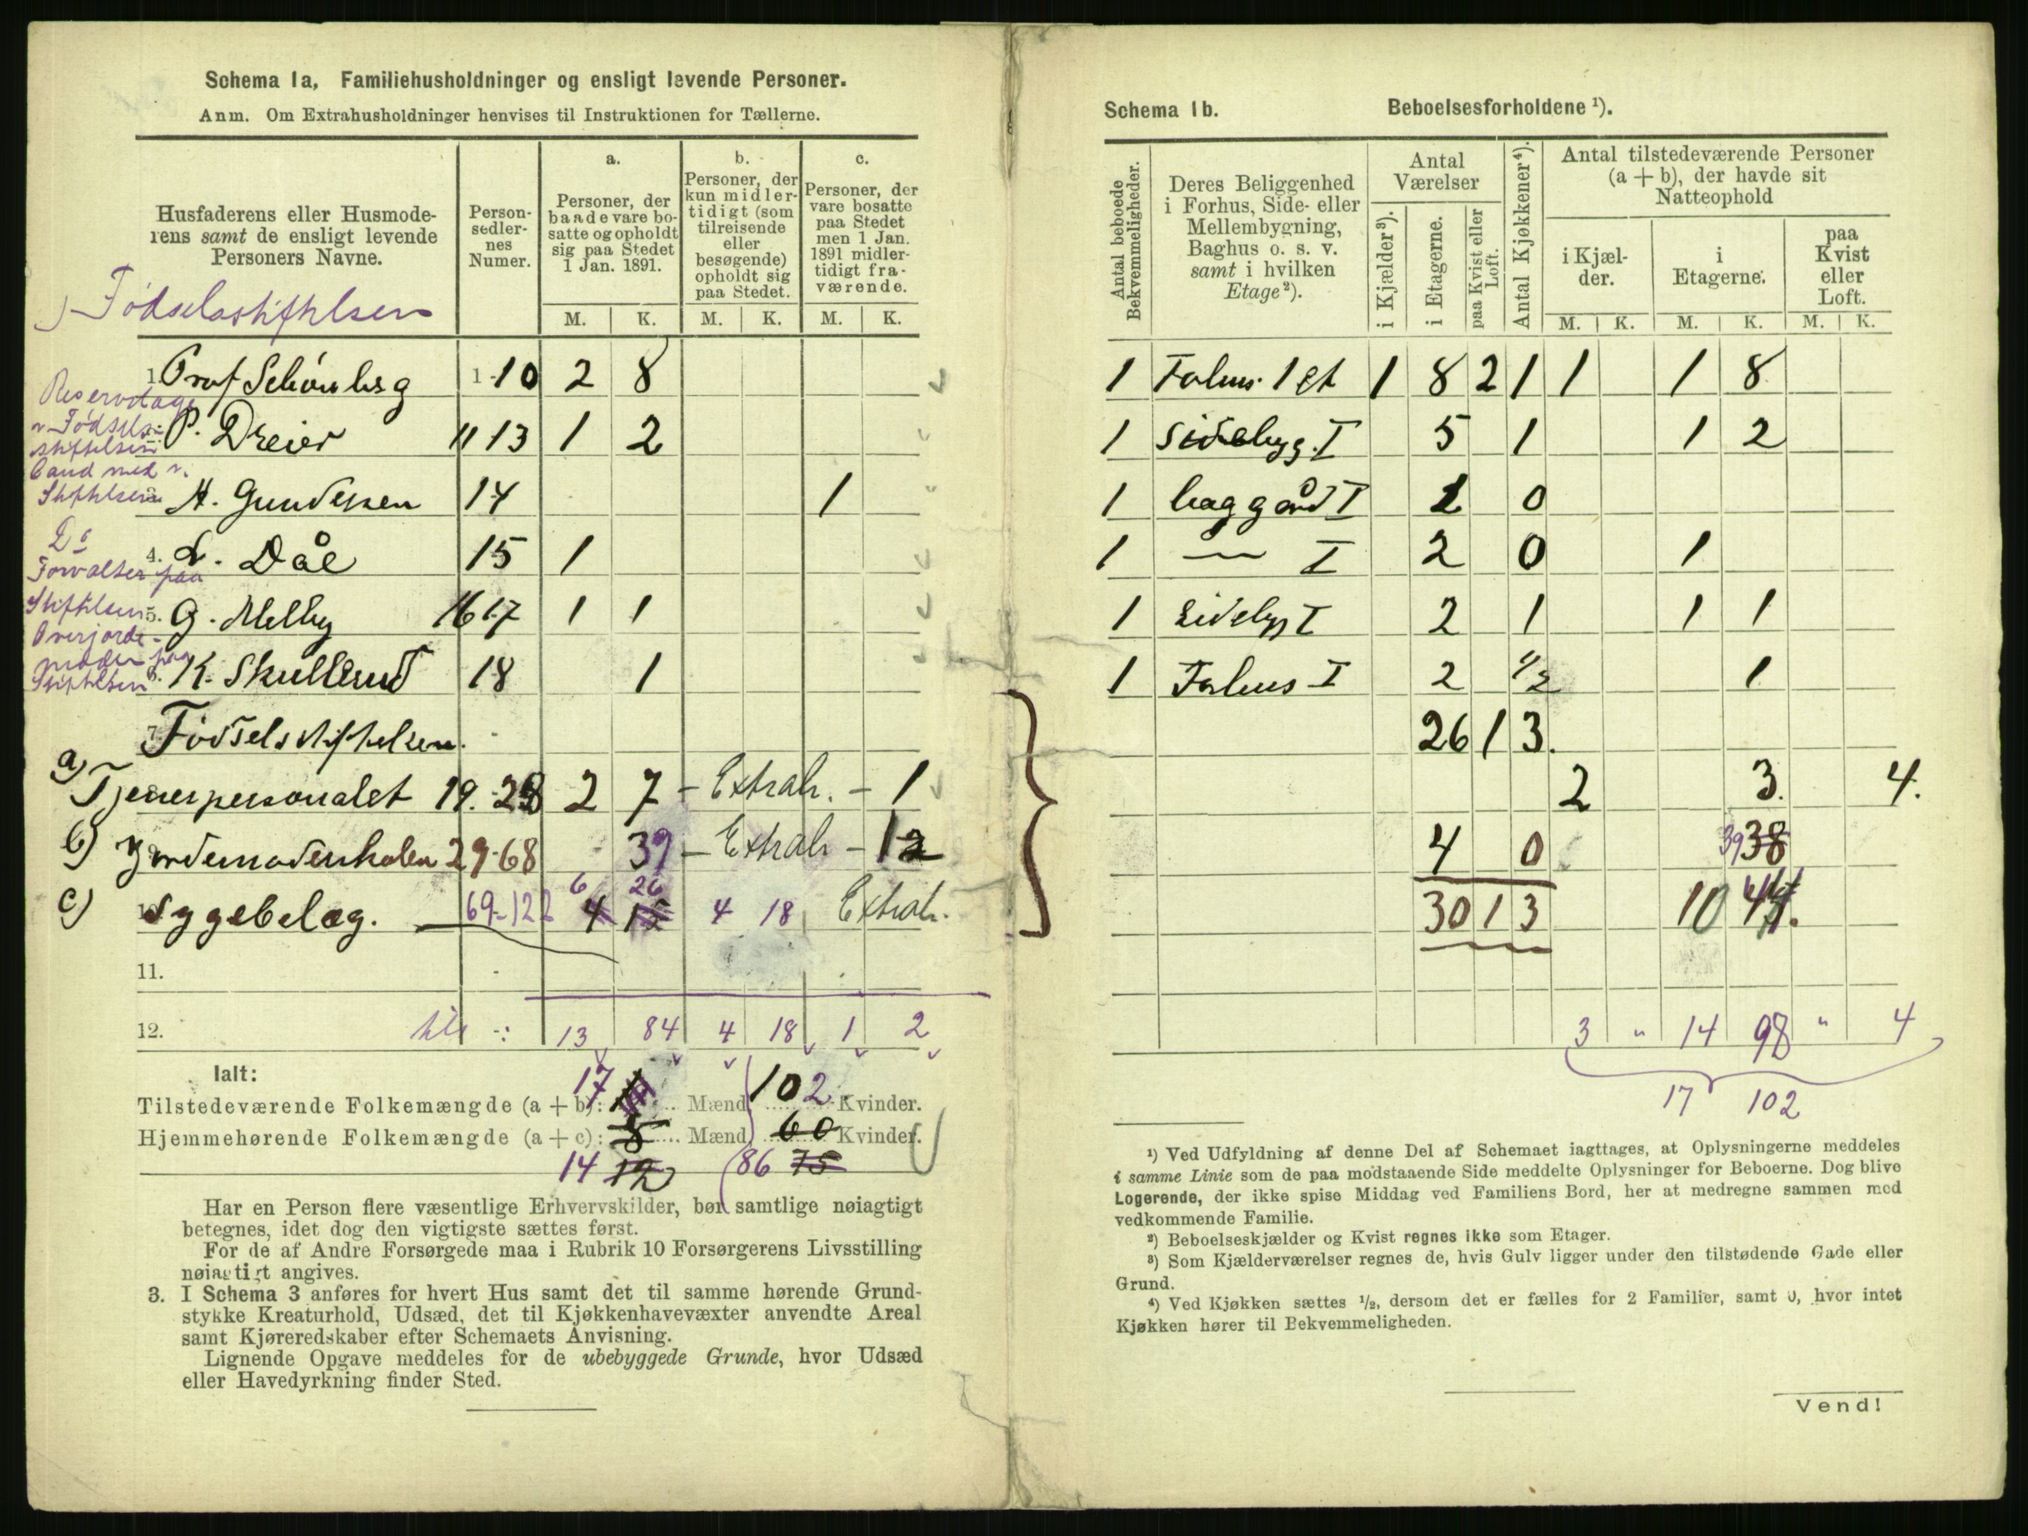 Schema 1a, Familiehusholdninger og ensligt levende Personer.
Anm. Om Extrahusholdninger henvises til Instruktionen for Tællerne.
Husfaderens eller Husmoderens samt de ensligt levende Personers Navne.
Person-sedler-nes Numer.
a. Personer, der baade vare bosatte og opholdt sig paa Stedet 1 Jan. 1891.
b. Personer, der kun midlertidigt (som tilreisende eller besøgende) opholdt sig paa Stedet.
c. Personer, der vare bosatte paa Stedet men 1 Jan. 1891 midlertidigt fraværende.
M. K. M. K. M. K.
Fødselsstiftelsen
1. Prof Schönberg 1-10 2 8
Reservelæge
v. Fødselsstiftelsen
P. Dreier 11 13 1 2
Cand med v. Stiftelsen
H. Gundersen 14 1
Do
4. L. Dåe 15 1
Forvalter paa Stiftelsen
5. G. Melby 16 17 1 1
Overjordemoder paa Stiftelsen
6. K. Skullerud 18 1
7. Fødselsstiftelsen.
a) Tjenerpersonalet 19-28 2 7 - Extrah. - 1
b) Jordemoderskolen 29-68 39 - Extrah - 1
c) Sygebelæg. 69-122 6 4 26 15 4 18 Extrah.
11.
12. 13 84 4 18 1 2
Ialt:
Tilstedeværende Folkemængde (a + b): 17 Mænd 102 Kvinder.
Hjemmehørende Folkemængde (a + c): 8 Mænd 60 Kvinder.
14 12 86 75
Har en Person flere væsentlige Erhvervskilder, bør samtlige nøiagtigt
betegnes, idet dog den vigtigste sættes først.
For de af Andre Forsørgede maa i Rubrik 10 Forsørgerens Livsstilling
nøiagtigt angives.
3. I Schema 3 anføres for hvert Hus samt det til samme hørende Grund-
stykke Kreaturhold, Udsæd, det til Kjøkkenhavevæxter anvendte Areal
samt Kjøreredskaber efter Schemaets Anvisning.
Lignende Opgave meddeles for de ubebyggede Grunde, hvor Udsæd
eller Havedyrkning finder Sted.
Schema 1b. Beboelsesforholdene ¹).
Antal beboede Bekvemmeligheder.
Deres Beliggenhed i Forhus, Side- eller Mellembygning, Baghus o. s. v. samt i hvilken Etage²).
Antal Værelser
i Kjælder³).
i Etagerne.
paa Kvist eller Loft.
Antal Kjøkkener⁴).
Antal tilstedeværende Personer (a + b), der havde sit Natteophold
i Kjælder.
i Etagerne.
paa Kvist eller Loft.
M. K. M. K. M. K.
1 Forhus 1 et 1 8 2 1 1 1 8
1 Sidebygg. I 5 1 1 2
1 baggård I 0
1 — I 2 0 1
1 Sidebyg I 2 1 1 1
1 Forhus I 2 1/2 1
26 1 3.
2 3. 4.
4 0 39 38
30 1 3 10
3 " 14 98 " 4
17 102
¹) Ved Udfyldning af denne Del af Schemaet iagttages, at Oplysningerne meddeles
i samme Linie som de paa modstaaende Side meddelte Oplysninger for Beboerne. Dog blive
Logerende, der ikke spise Middag ved Familiens Bord, her at medregne sammen med
vedkommende Familie.
²) Beboelseskjælder og Kvist regnes ikke som Etager.
³) Som Kjælderværelser regnes de, hvis Gulv ligger under den tilstødende Gade eller
Grund.
⁴) Ved Kjøkken sættes ½, dersom det er fælles for 2 Familier, samt 0, hvor intet
Kjøkken hører til Bekvemmeligheden.
Vend!